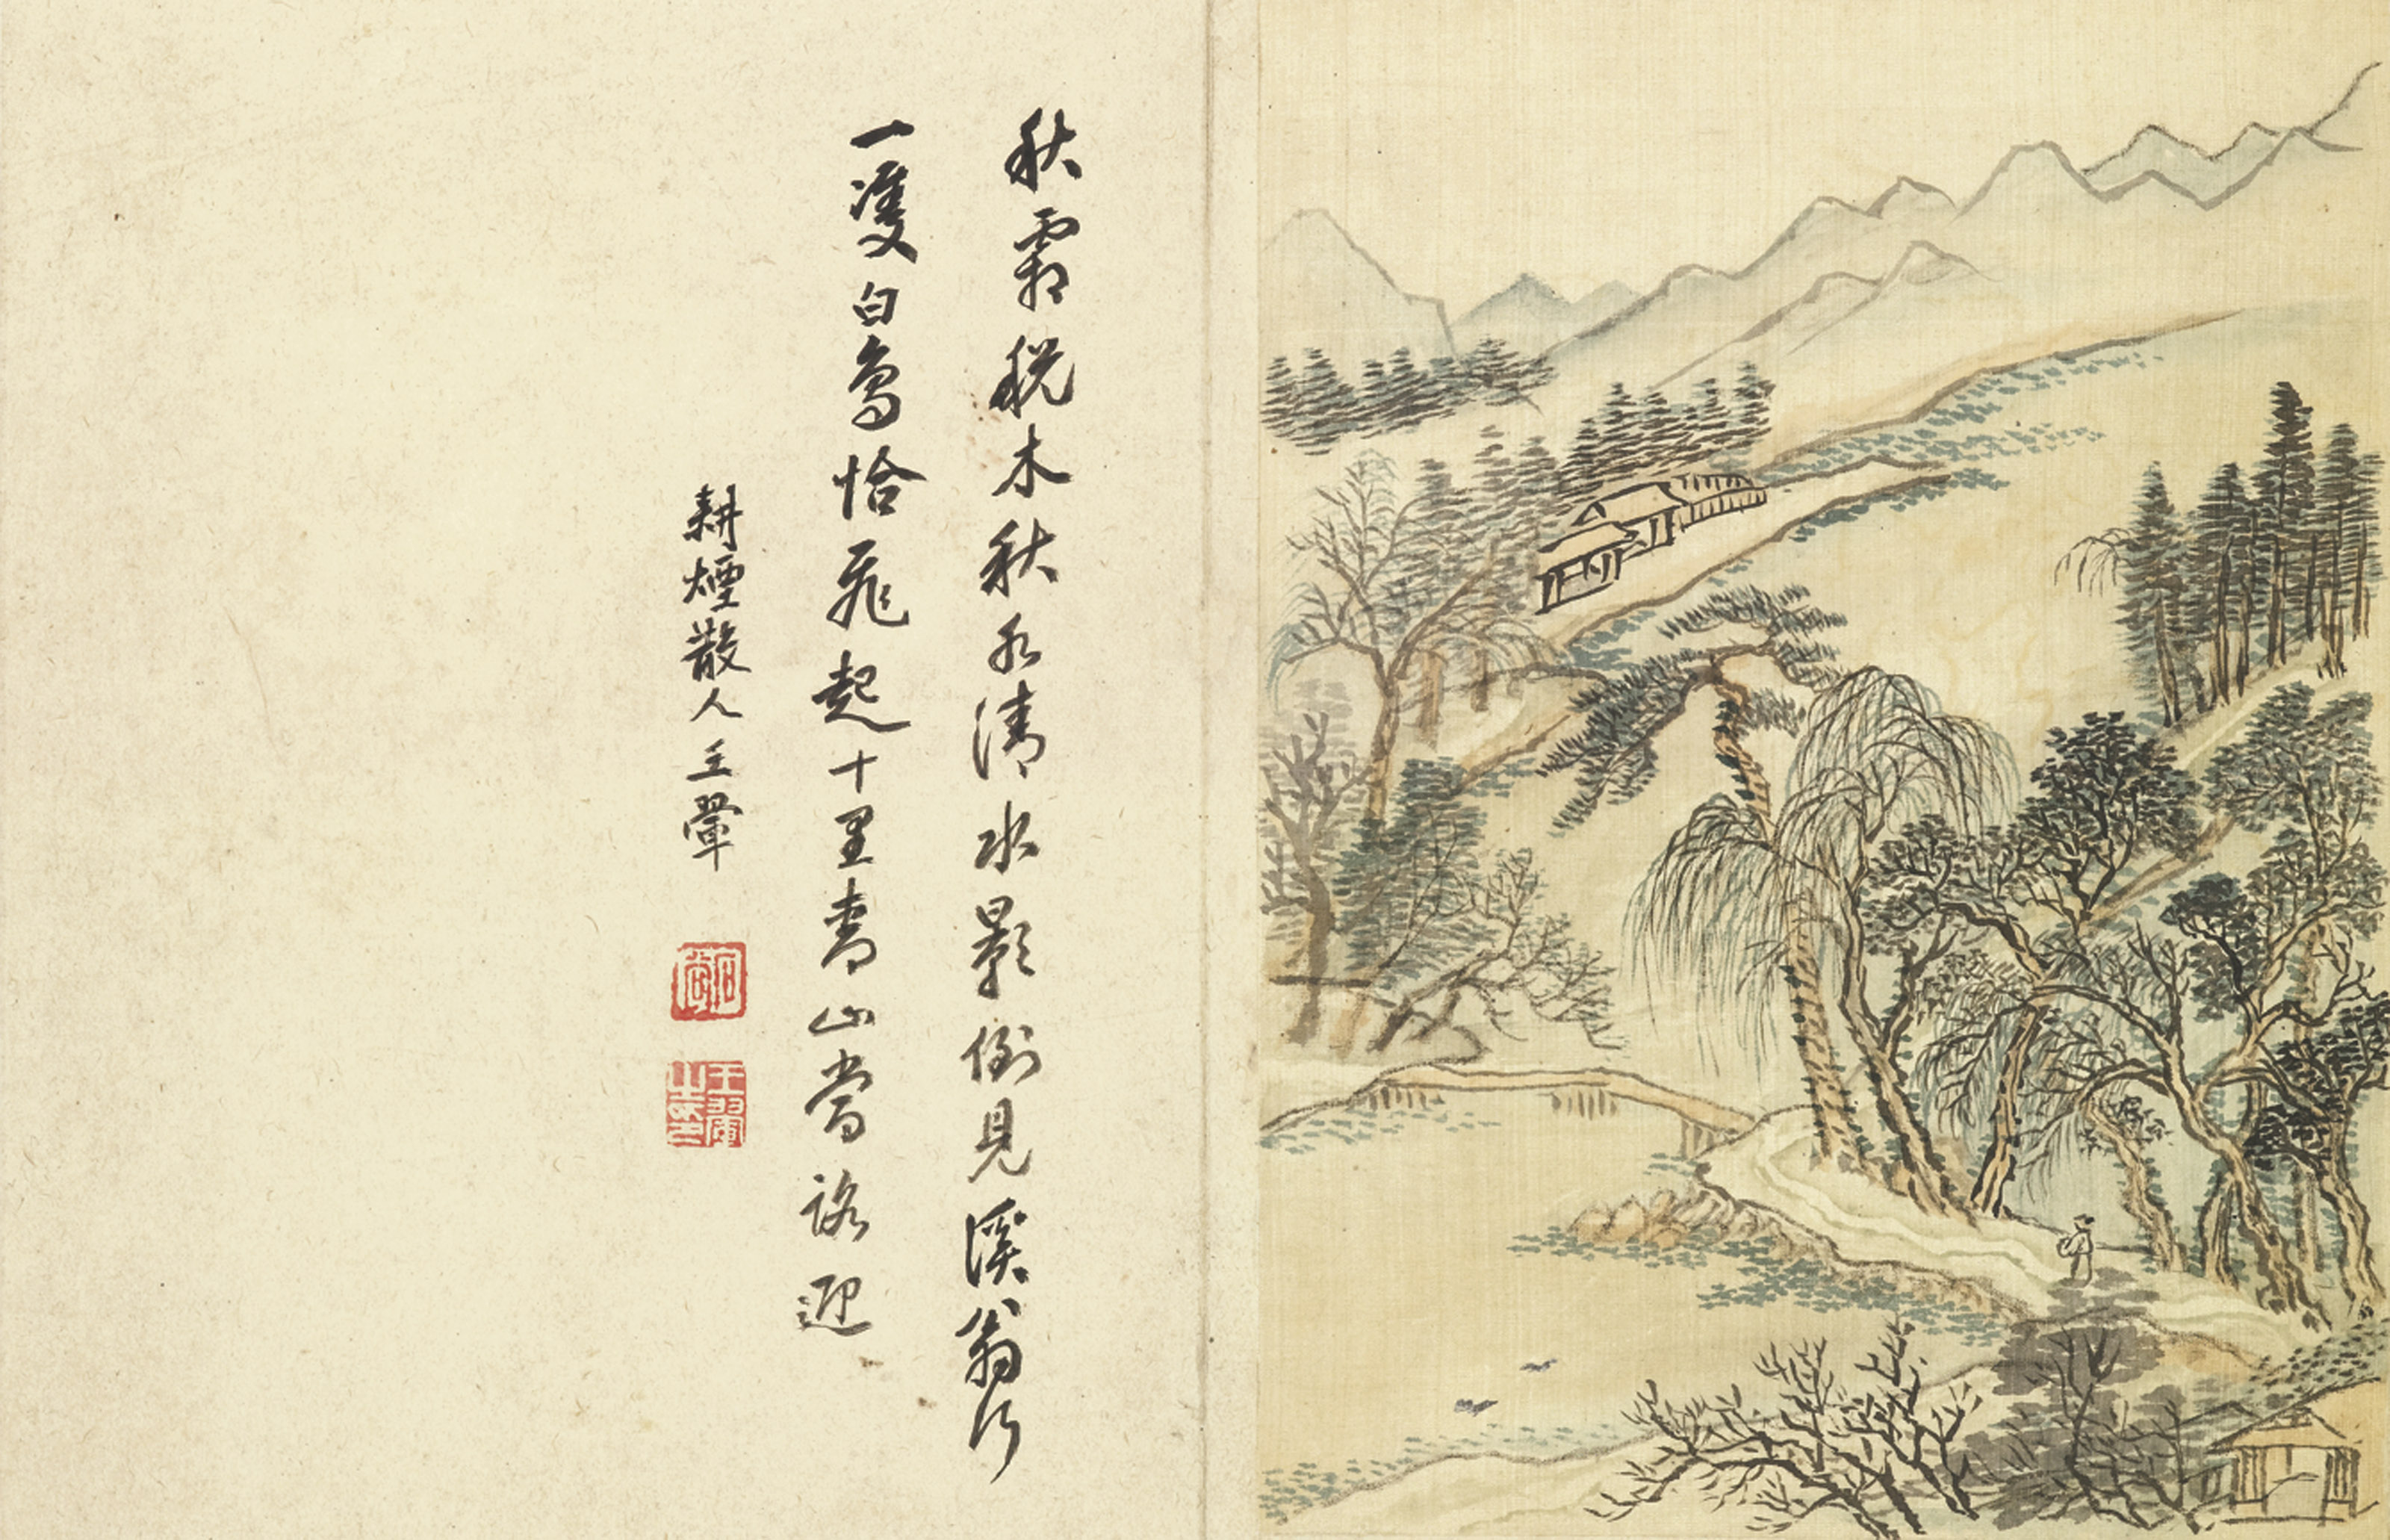 秋霜脫木秋水清水影倒見溪翁行
一雙白鳥恰飛起十里青山當路迎
耕煙散人王翬
王翬之印